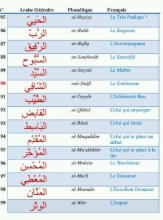 N° Arabe littéral Phonétique Français
85 الحَيِيّ al-Hayiyy Le Très Pudique
86 الرَّبّ ar-Rabb Le Seigneur
87 الرَّفِيق ar-Rafîq L'Accompagnant
88 السُّبُّوح as-Soubboûh Le Sanctifié
89 السَّيِّد as-Sayyid Le Maître
90 الشَّافِي ash-Shâfî Le Guérisseur
91 الطَّيِّب at-Tayyib L'Infiniment Bon
92 القَابِض al-Qâbid Celui qui empoigne
93 البَاسِط al-Bâsit Celui qui étend
94 المُقَدِّم al-Muqaddim Celui qui se place au début
95 المُؤَخِّر al-Mu'akhkhir Celui qui se place à la fin
96 المُحْسِن al-Muhsin Le Bienfaiteur
97 المُعْطِي al-Mu'tî Le Donateur
98 المَنَّان al-Mannân L'Excellent Donateur
99 الوِتْر al-Witr L'Impair